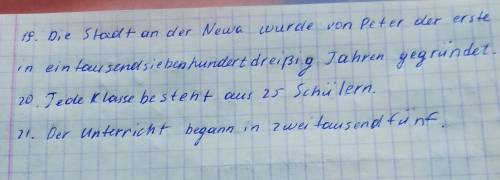 19. Die Stadt an der Newa wurde von Peter der erste
in eintausendsiebenhundertdreißig Jahren gegründet.
20. Jede Klasse besteht aus 25 Schülern.
21. Der Unterricht begann in zweitausendfünf.